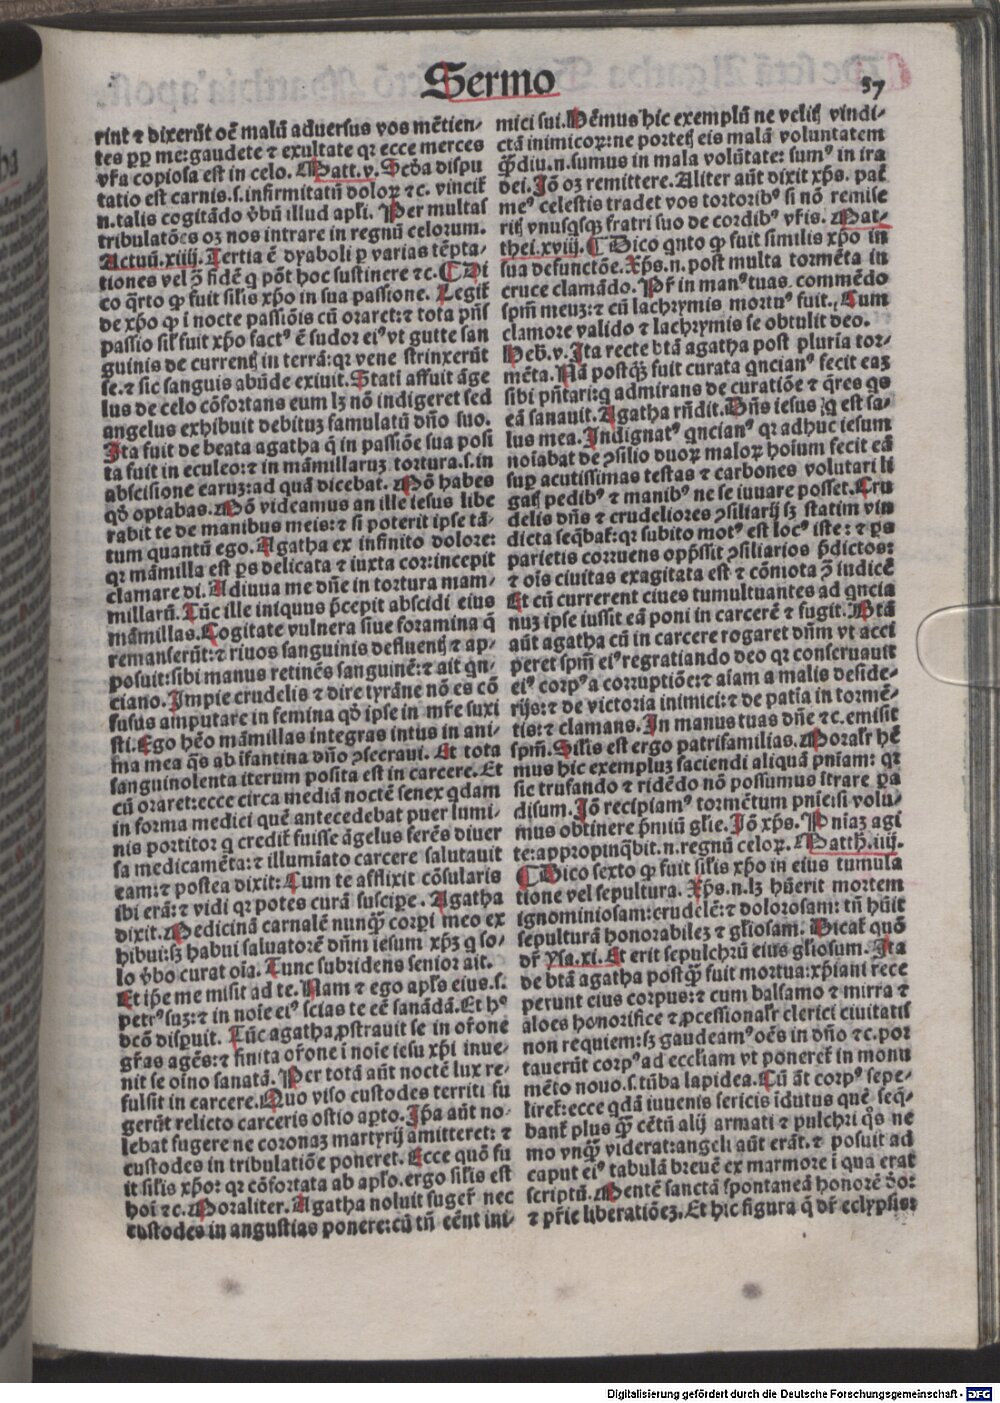 Sermo
57
rint ⁊ dixerūt oē malū aduersus vos mētien-
tes ꝓp me:gaudete ⁊ exultate qꝛ ecce merces
vr̄a copiosa est in celo. Matt.v. Scḋa dispu
tatio est carnis.s.infirmitatū doloꝝ ⁊c. vincit̄
n.talis cogitādo v̄bū illud apl̄i. Per multas
tribulatōes oꝫ nos intrare in regnū celorum.
Actuū.xiiij. Tertia ē dyaboli ꝑ varias tēpta-
tiones vel ↄ̄ fidē ꝙ pōt hoc sustinere ⁊c. ¶ Di
co q̄rto ꝙ fuit sil̄is xp̄o in sua passione. Legit̄
de xp̄o ꝙ i nocte passiōis cū oraret:⁊ tota pn̄s
passio sil̄ fuit xp̄o factꝰ ē sudor eiꝰ vt gutte san
guinis de currentꝭ in terrā:qꝛ vene strinxerūt
se.⁊ sic sanguis abūde exiuit. Stati affuit āge
lus de celo cōfortans eum lꝫ nō indigeret sed
angelus exhibuit debituꝫ famulatū dn̄o suo.
Ita fuit de beata agatha q̄ in passiōe sua posi
ta fuit in eculeo:⁊ in māmillaruꝫ tortura.s.in
abscisione earuꝫ:ad quā dicebat. Mō habes
qḋ optabas. Mō videamus an ille iesus libe
rabit te de manibus meis:⁊ si poterit ipse tā-
tum quantū ego. Agatha ex infinito dolore:
qꝛ māmilla est ꝑs delicata ⁊ iuxta cor:incepit
clamare di. Adiuua me dn̄e in tortura mam-
millarū. Tūc ille iniquus p̄cepit abscidi eius
māmillas. Cogitate vulnera siue foramina q̄
remanserūt:⁊ riuos sanguinis defluentꝭ ⁊ ap-
posuit:sibi manus retinēs sanguinē:⁊ ait qn̄-
ciano. Impie crudelis ⁊ dire tyrāne nō es cō
fusus amputare in femina qḋ ipse in mr̄e suxi
sti. Ego hēo māmillas integras intus in ani-
ma mea q̄s ab īfantina dn̄o ↄsecraui. Et tota
sanguinolenta iterum posita est in carcere. Et
cū oraret:ecce circa mediā noctē senex qdam
in forma medici quē antecedebat puer lumi-
nis portitor q credit̄ fuisse āgelus ferēs diuer
sa medicamēta:⁊ illumiato carcere salutauit
eam:⁊ postea dixit: Cum te afflixit cōsularis
ibi erā:⁊ vidi qꝛ potes curā suscipe. Agatha
dixit. Medicinā carnalē nunq̄ corpi meo ex
hibui:sꝫ habui saluatorē dn̄m iesum xp̄ꝫ q so-
lo v̄bo curat oīa. Tunc subridens senior ait.
Et ip̄e me misit ad te. Nam ⁊ ego apl̄s eius.s.
petrꝰ suꝫ:⁊ in noīe eiꝰ scias te eē sanādā. Et hꝰ
dcō disparuit. Tūc agatha ꝓstrauit se in or̄one
gr̄as agēs:⁊ finita or̄one i noīe iesu xp̄i inue-
nit se oīno sanatā. Per totā aūt noctē lux re-
fulsit in carcere. Quo viso custodes territi fu
gerūt relicto carceris ostio apto. Ip̄a aūt no-
lebat fugere ne coronaꝫ martyrij amitteret: ⁊
custodes in tribulatiōe poneret. Ecce quō fu
it sil̄is xp̄o: qꝛ cōfortata ab apl̄o.ergo sil̄is est
hoi ⁊c. Moraliter. Agatha noluit fuger̄ nec
custodes in angustias ponere:cū tn̄ eēnt ini-
mici sui. Hēmus hic exemplū ne velitꝭ vindi-
ctā inimicoꝝ:ne portetꝭ eis malā voluntatem
q̄diu.n.sumus in mala volūtate: sumꝰ in ira
dei. Iō oꝫ remittere. Aliter aūt dixit xp̄s. pat̄
meꝰ celestis tradet vos tortoribꝰ si nō remise
ritꝭ vnusqsqꝫ fratri suo de cordibꝰ vr̄is. Mat-
thei.xviij. ¶ Dico qnto ꝙ fuit similis xp̄o in
sua defunctōe. Xp̄s.n.post multa tormēta in
cruce clamādo. Pr̄ in manꝰ tuas commēdo
spm̄ meuꝫ:⁊ cū lachrymis mortuꝰ fuit. Cum
clamore valido ⁊ lachrymis se obtulit deo.
Heb̄.v. Ita recte btā agatha post pluria tor-
mēta. Nā postq̄ꝫ fuit curata qncianꝰ fecit eaꝫ
sibi pn̄tari:q admirans de curatiōe ⁊ q̄res qs
eā sanauit. Agatha rn̄dit. Dn̄s iesus q est sa-
lus mea. Indignatꝰ qncianꝰ qꝛ adhuc iesum
noīabat de ↄsilio duoꝝ maloꝝ hoium fecit eā
suꝑ acutissimas testas ⁊ carbones volutari li
gatꝭ pedibꝰ ⁊ manibꝰ ne se iuuare posset. Cru
delis dn̄s ⁊ crudeliores ↄsiliarij sꝫ statim vin
dicta seq̄bat̄:qꝛ subito motꝰ est locꝰ iste: ⁊ ꝑs
parietis corruens opp̄ssit ↄsiliarios p̄dictos:
⁊ oīs ciuitas exagitata est ⁊ cōmota ↄ̄ iudicē
Et cū currerent ciues tumultuantes ad qncia
nuꝫ ipse iussit eā poni in carcerē ⁊ fugit. Btā
aūt agatha cū in carcere rogaret dn̄m vt acci
peret spm̄ eiꝰ regratiando deo qꝛ conseruauit
eiꝰ corpꝰ a corruptiōe:⁊ aīam a malis deside-
rijs:⁊ de victoria inimici:⁊ de patīa in tormē-
tis:⁊ clamans. In manus tuas dn̄e ⁊c.emisit
spm̄. Sil̄is est ergo patrifamilias. Moral̄r hē
mus hic exempluꝫ faciendi aliquā pniam: qꝛ
sic trufando ⁊ ridēdo nō possumus ītrare pa
disum. Iō recipiamꝰ tormētum pnie:si volu-
mus obtinere p̄miū gl̄ie. Iō xp̄s. Pniaꝫ agi
te:appropinq̄bit.n.regnū celoꝝ. Matth̄.iiij.
¶ Dico sexto ꝙ fuit sil̄is xp̄o in eius tumula
tione vel sepultura. Xp̄s.n.lꝫ hūerit mortem
ignominiosam:crudelē:⁊ dolorosam: tn̄ hūit
sepulturā honorabileꝫ ⁊ gl̄iosam. Sicut quō
dr̄ Ysa.xi. Et erit sepulchrū eius gl̄iosum. Ita
de btā agatha postq̄ fuit mortua:xp̄iani rece
perunt eius corpus:⁊ cum balsamo ⁊ mirra ⁊
aloes honorifice ⁊ ꝓcessional̄r clerici ciuitatis
non requiem:sꝫ gaudeamꝰ oēs in dn̄o ⁊c.por
tauerūt corpꝰ ad eccl̄iam vt poneret̄ in monu
mēto nouo.s.tūba lapidea. Cū āt corpꝰ sepe-
liret̄:ecce qdā iuuenis sericis īdutus quē seq̄-
bant̄ plus q̄ cētū alij armati ⁊ pulchri q̄s ne
mo vnq̄ viderat:angeli aūt erāt. ⁊ posuit ad
caput eiꝰ tabulā breuē ex marmore i qua erat
scriptū. Mentē sanctā spontaneā honorē ḋo:
⁊ pr̄ie liberatiōeꝫ. Et hic figura q̄ dr̄ eclypsis:
Digitalisierung gefördert durch die Deutsche Forschungsgemeinschaft - DFG